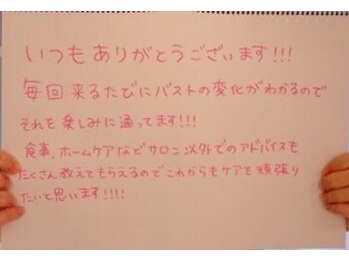 いつもありがとうございます!!!
毎回来るたびにバストの変化がわかるので
それを楽しみに通ってます!!!
食事、ホームケアなどサロン以外でのアドバイスも
たくさん教えてもらえるのでこれからもケアを頑張り
たいと思います!!!!